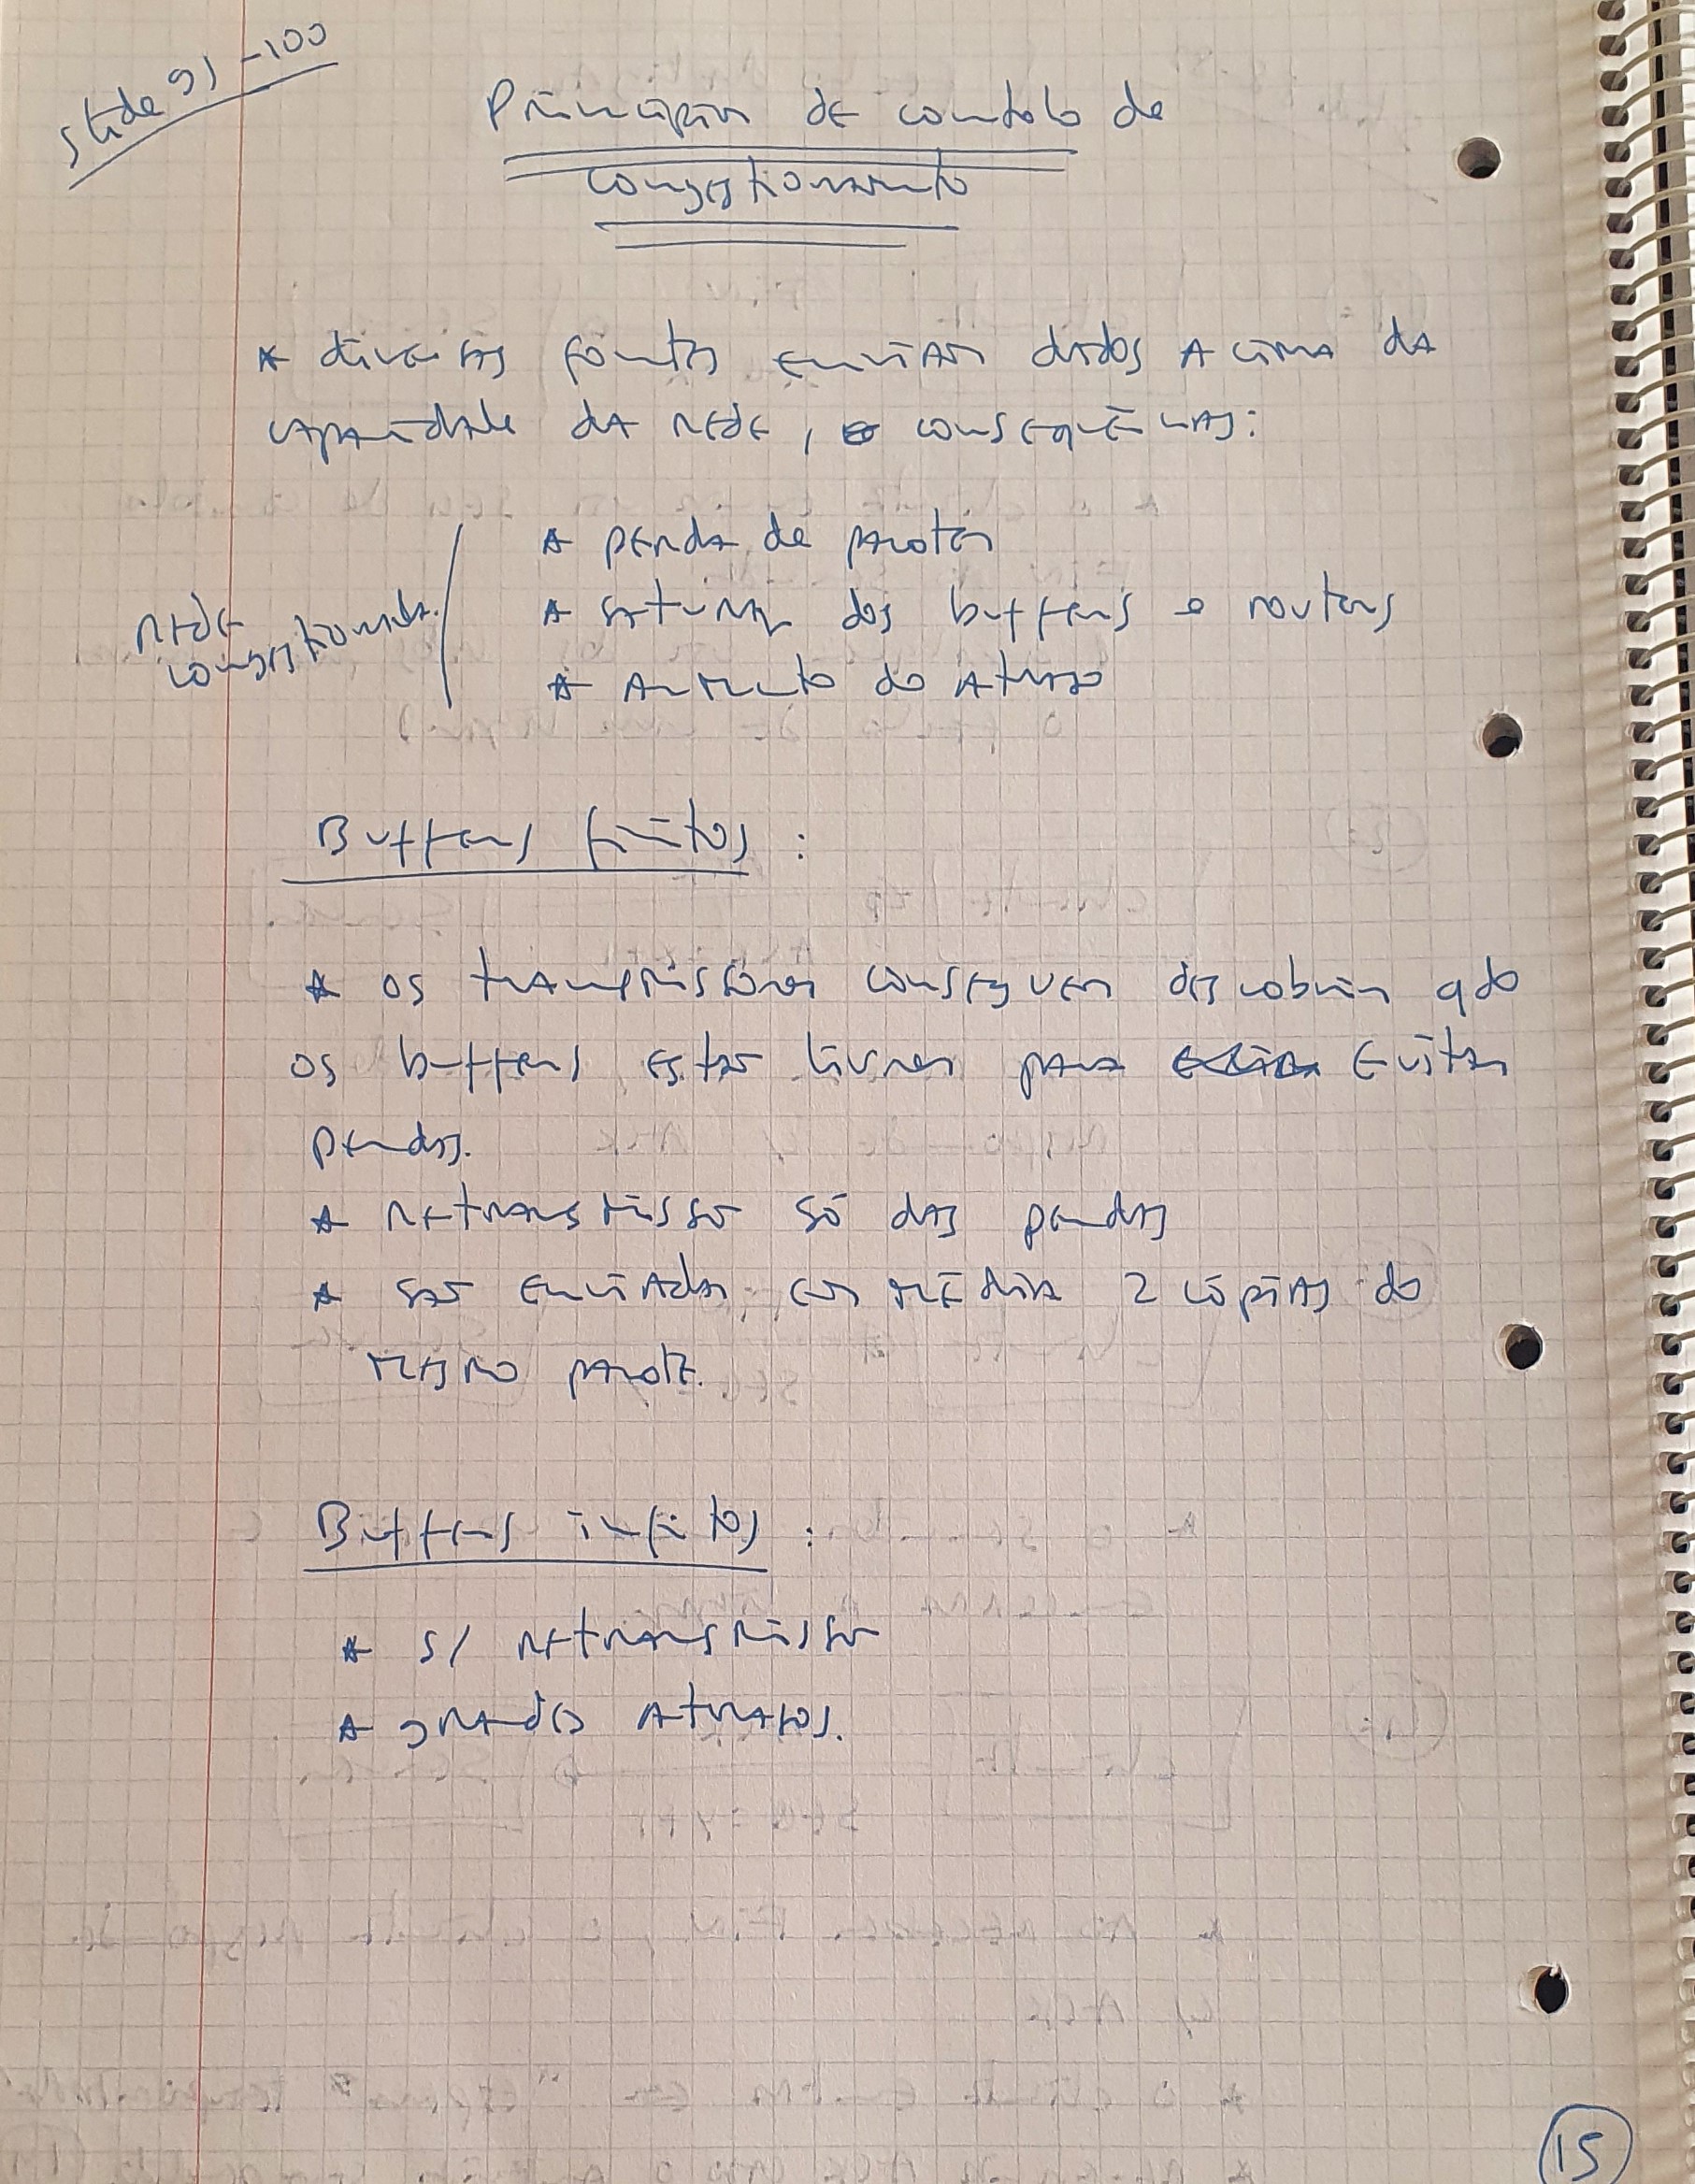 Slide 91-100
Princípios de controlo de
congestionamento
* diversas fontes enviam dados acima da
capacidade da rede, consequências:
* perda de pacotes
* satura dos buffers e routers
* aumento do atraso
rede
congestionada
Buffers finitos :
* os transmissores conseguem descobrir qdo
os buffers estão livres para evitar
perdas.
* retransmissão só das perdas
* são enviadas em média 2 cópias do
mesmo pacote.
Buffers infitos :
* s/ retransmissão
* grandes atrasos.
15